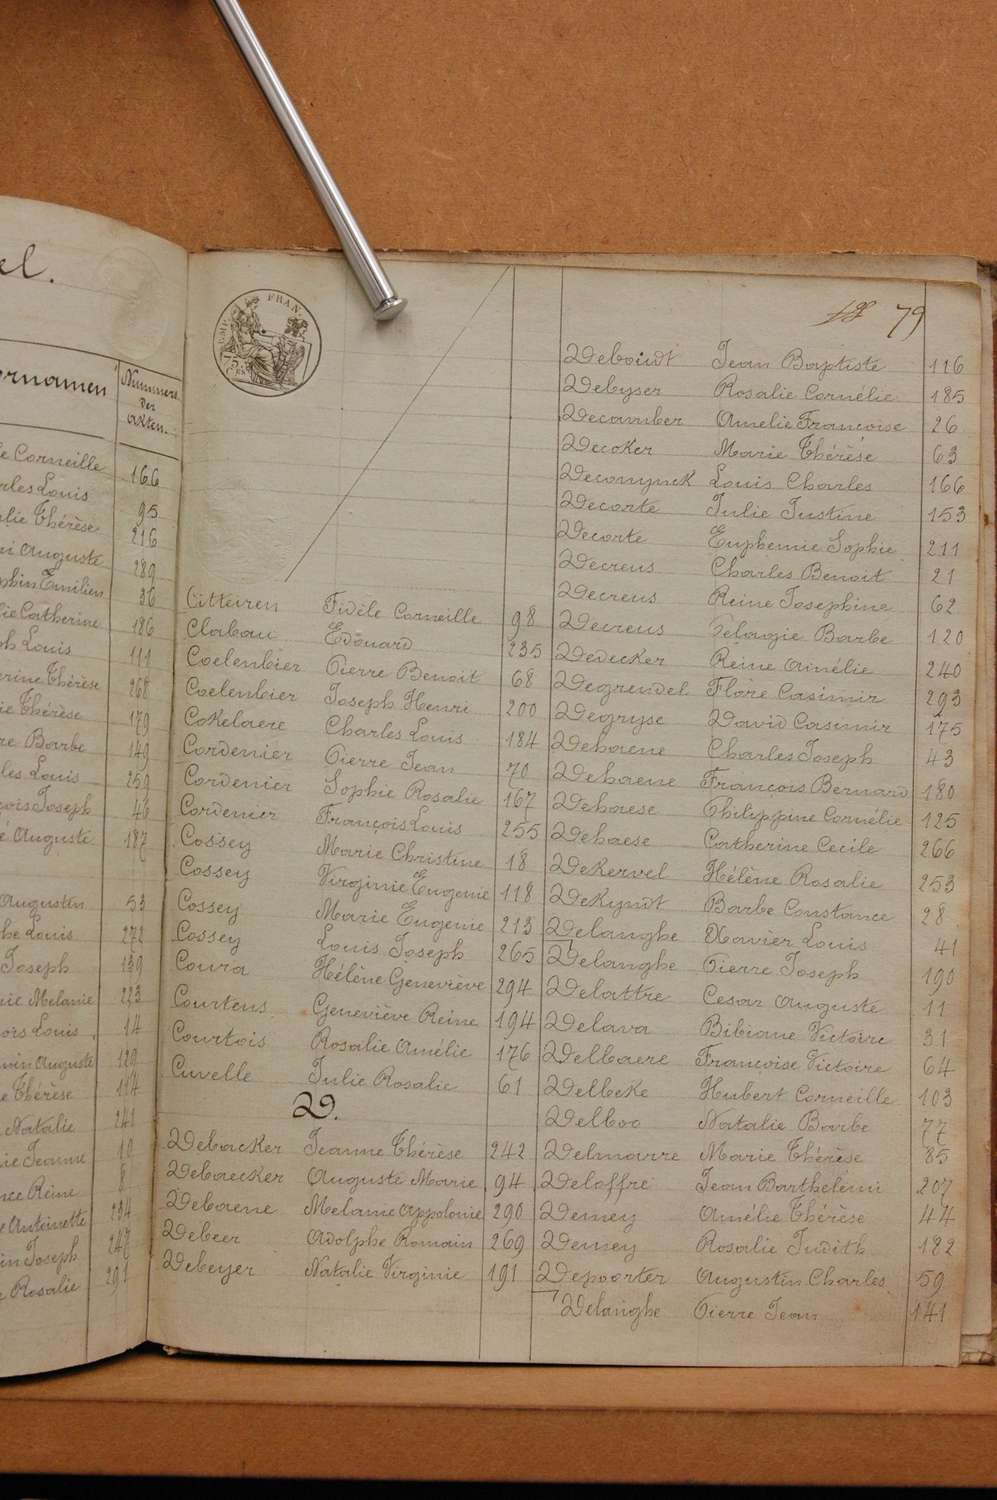 el.
ornamen
Nummers
der
Akten.
e Corneille 166
rles Louis 95
lie Thérèse 216
ri Auguste 289
phin Emilien 36
ie Catherine 186
ph Louis 111
erine Thérèse 268
ie Thérèse 179
re Barbe 149
les Louis 259
çois Joseph 46
é Auguste 187
Augustin 53
he Louis 272
Joseph 139
ie Melanie 223
ors Louis 14
win Auguste 129
e Thérèse 114
Natalie 241
ie Jeanne 10
nce Reine 8
e Antoinette 294
in Joseph 247
Rosalie 291
FRAN
75
Citteiren Fidèle Corneille 98
Clabau Edouard 235
Coelenbier Pierre Benoit 68
Coelenbier Joseph Henri 200
Cokelaere Charles Louis 184
Cordenier Pierre Jean 70
Cordenier Sophie Rosalie 167
Cordenier François Louis 255
Cossey Marie Christine 18
Cossey Virginie Eugenie 118
Cossey Marie Eugenie 213
Cossey Louis Joseph 265
Coura Hélène Geneviève 294
Courtens Geneviève Reine 194
Courtois Rosalie Amélie 176
Cuvelle Julie Rosalie 61
D.
Debacker Jeanne Thérèse 242
Debaecker Auguste Marie 94
Debaene Melanie Appolonie 290
Debeer Adolphe Romain 269
Debeyer Natalie Virginie 191
79
Deboudt Jean Baptiste 116
Debyser Rosalie Cornélie 185
Decamber Amelie Françoise 26
Decoker Marie Thérèse 63
Decomynck Louis Charles 166
Decorte Julie Justine 153
Decorte Euphemie Sophie 211
Decreus Charles Benoit 21
Decreus Reine Josephine 62
Decreus Pelagie Barbe 120
Dedecker Reine Amélie 240
Degrendel Flore Casimir 293
Degryse David Casimir 175
Dehaene Charles Joseph 43
Dehaene François Bernard 180
Dehaese Philippine Cornélie 125
Dehaese Catherine Cecile 266
Dekervel Hélène Rosalie 253
Dekyndt Barbe Constance 28
Delanghe Xavier Louis 41
Delanghe Pierre Joseph 190
Delattre Cesar Auguste 11
Delava Bibiane Victoire 31
Delbaere Françoise Victoire 64
Delbeke Hubert Corneille 103
Delboo Natalie Barbe 77
Delmarre Marie Thérèse 85
Deloffre Jean Barthélemi 207
Demey Amélie Thérèse 44
Demey Rosalie Judith 182
Depoorter Augustin Charles 59
Delanghe Pierre Jean 141